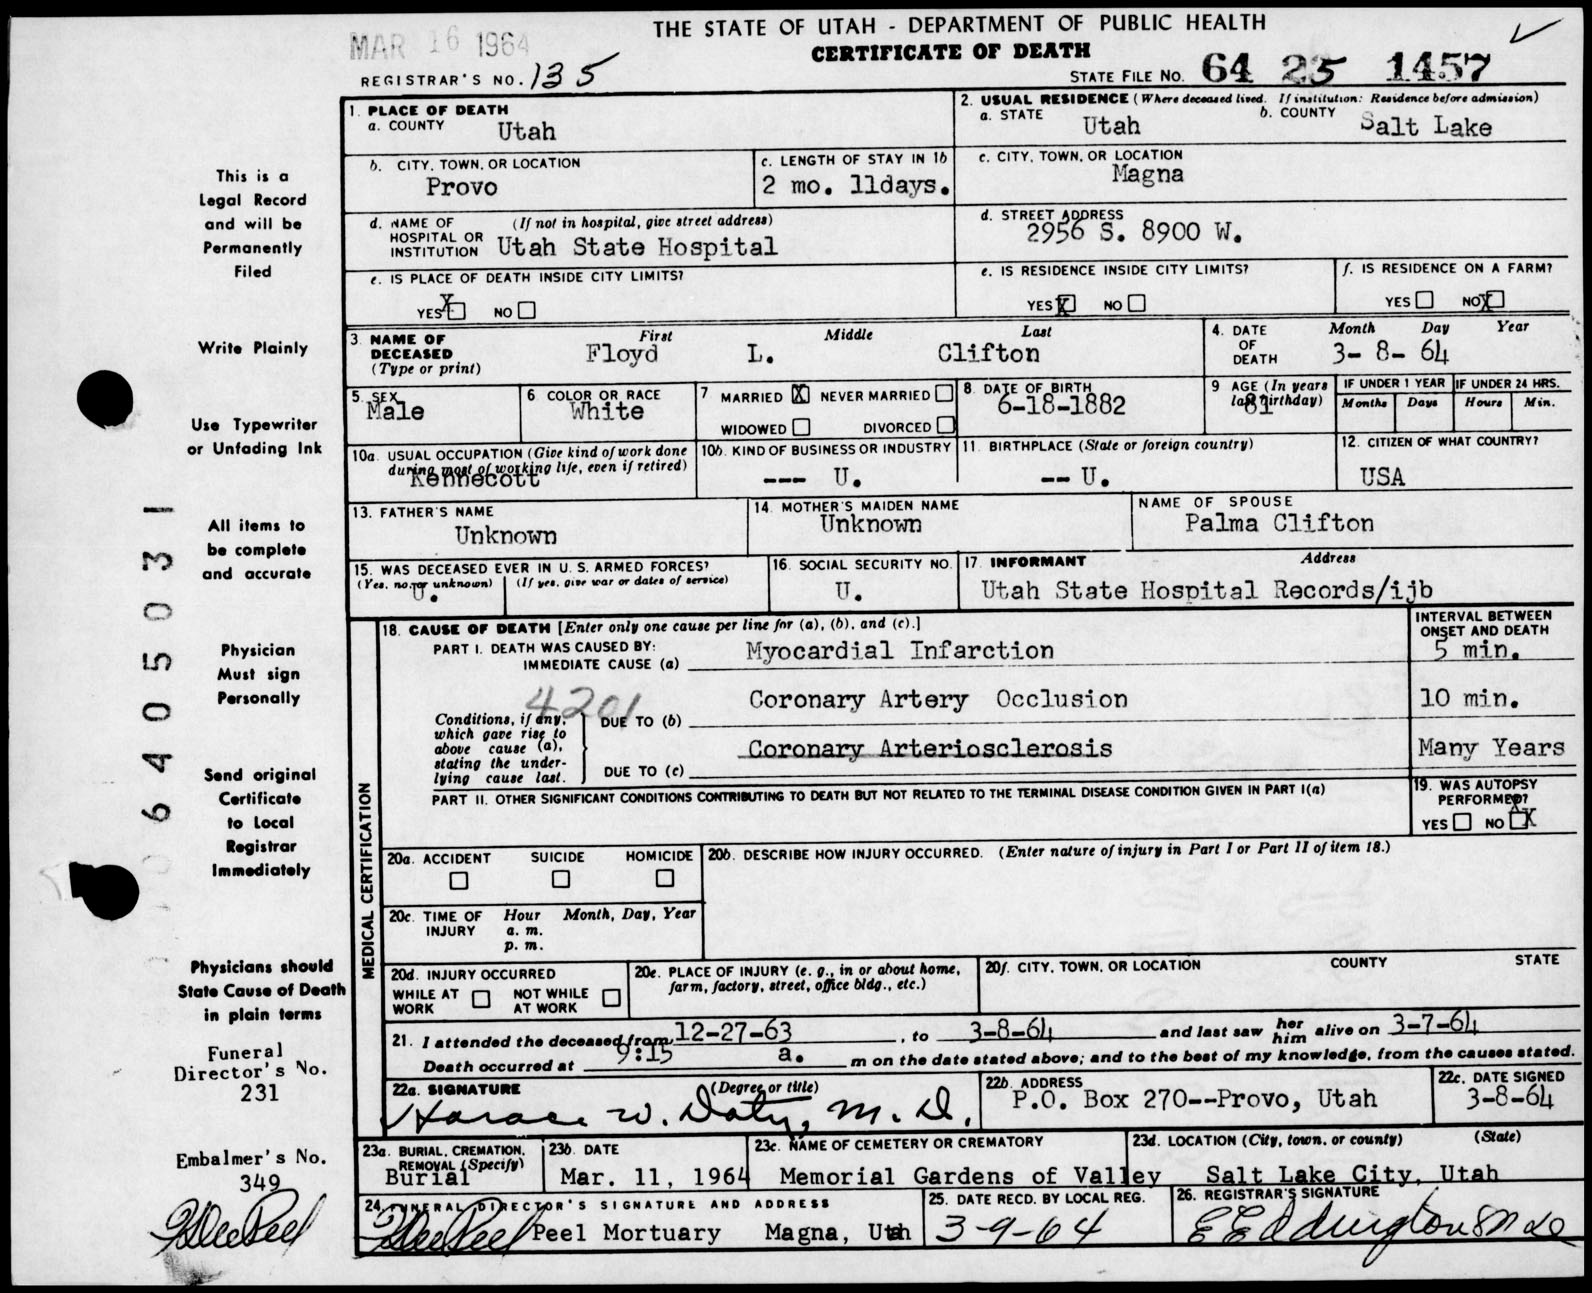 THE STATE OF UTAH - DEPARTMENT OF PUBLIC HEALTH
MAR 16 1964
CERTIFICATE OF DEATH
REGISTRAR'S NO. 135
STATE FILE NO. 64 25 1457
1. PLACE OF DEATH
a. COUNTY Utah
2. USUAL RESIDENCE (Where deceased lived. If institution: Residence before admission)
a. STATE Utah b. COUNTY Salt Lake
b. CITY, TOWN, OR LOCATION Provo
c. LENGTH OF STAY IN 1b 2 mo. 11days.
c. CITY, TOWN, OR LOCATION Magna
d. NAME OF HOSPITAL OR INSTITUTION (If not in hospital, give street address) Utah State Hospital
d. STREET ADDRESS 2956 S. 8900 W.
e. IS PLACE OF DEATH INSIDE CITY LIMITS?
YES X NO
e. IS RESIDENCE INSIDE CITY LIMITS?
YES X NO
f. IS RESIDENCE ON A FARM?
YES NO X
3. NAME OF DECEASED (Type or print)
First Middle Last
Floyd L. Clifton
4. DATE OF DEATH
Month Day Year
3- 8- 64
5. SEX Male
6 COLOR OR RACE White
7 MARRIED X NEVER MARRIED
WIDOWED DIVORCED
8. DATE OF BIRTH 6-18-1882
9 AGE (In years last birthday) 81
IF UNDER 1 YEAR
Months Days
IF UNDER 24 HRS.
Hours Min.
10a. USUAL OCCUPATION (Give kind of work done during most of working life, even if retired) Kennecott
10b. KIND OF BUSINESS OR INDUSTRY --- U.
11. BIRTHPLACE (State or foreign country) -- U.
12. CITIZEN OF WHAT COUNTRY? USA
13. FATHER'S NAME Unknown
14. MOTHER'S MAIDEN NAME Unknown
NAME OF SPOUSE Palma Clifton
15. WAS DECEASED EVER IN U. S. ARMED FORCES?
(Yes, no, or unknown) U. (If yes, give war or dates of service)
16. SOCIAL SECURITY NO. U.
17. INFORMANT Address
Utah State Hospital Records/ijb
MEDICAL CERTIFICATION
18. CAUSE OF DEATH [Enter only one cause per line for (a), (b), and (c).]
INTERVAL BETWEEN ONSET AND DEATH
PART I. DEATH WAS CAUSED BY:
IMMEDIATE CAUSE (a) Myocardial Infarction 5 min.
4201
Conditions, if any, which gave rise to above cause (a), stating the underlying cause last.
DUE TO (b) Coronary Artery Occlusion 10 min.
DUE TO (c) Coronary Arteriosclerosis Many Years
PART II. OTHER SIGNIFICANT CONDITIONS CONTRIBUTING TO DEATH BUT NOT RELATED TO THE TERMINAL DISEASE CONDITION GIVEN IN PART I(a)
19. WAS AUTOPSY PERFORMED?
YES NO X
20a. ACCIDENT SUICIDE HOMICIDE
20b. DESCRIBE HOW INJURY OCCURRED. (Enter nature of injury in Part I or Part II of item 18.)
20c. TIME OF INJURY
Hour Month, Day, Year
a. m.
p. m.
20d. INJURY OCCURRED
WHILE AT WORK NOT WHILE AT WORK
20e. PLACE OF INJURY (e. g., in or about home, farm, factory, street, office bldg., etc.)
20f. CITY, TOWN, OR LOCATION COUNTY STATE
21. I attended the deceased from 12-27-63, to 3-8-64 and last saw her him alive on 3-7-64
Death occurred at 9:15 a. m on the date stated above; and to the best of my knowledge, from the causes stated.
22a. SIGNATURE (Degree or title)
Horace W. Doty, M. D.
22b. ADDRESS P.O. Box 270--Provo, Utah
22c. DATE SIGNED 3-8-64
23a. BURIAL, CREMATION, REMOVAL (Specify) Burial
23b. DATE Mar. 11, 1964
23c. NAME OF CEMETERY OR CREMATORY Memorial Gardens of Valley
23d. LOCATION (City, town, or county) (State)
Salt Lake City, Utah
24. FUNERAL DIRECTOR'S SIGNATURE AND ADDRESS
Peel Mortuary Magna, Utah
25. DATE RECD. BY LOCAL REG. 3-9-64
26. REGISTRAR'S SIGNATURE
This is a
Legal Record
and will be
Permanently
Filed
Write Plainly
Use Typewriter
or Unfading Ink
All items to
be complete
and accurate
Physician
Must sign
Personally
Send original
Certificate
to Local
Registrar
Immediately
Physicians should
State Cause of Death
in plain terms
Funeral
Director's No.
231
Embalmer's No.
349
6405031